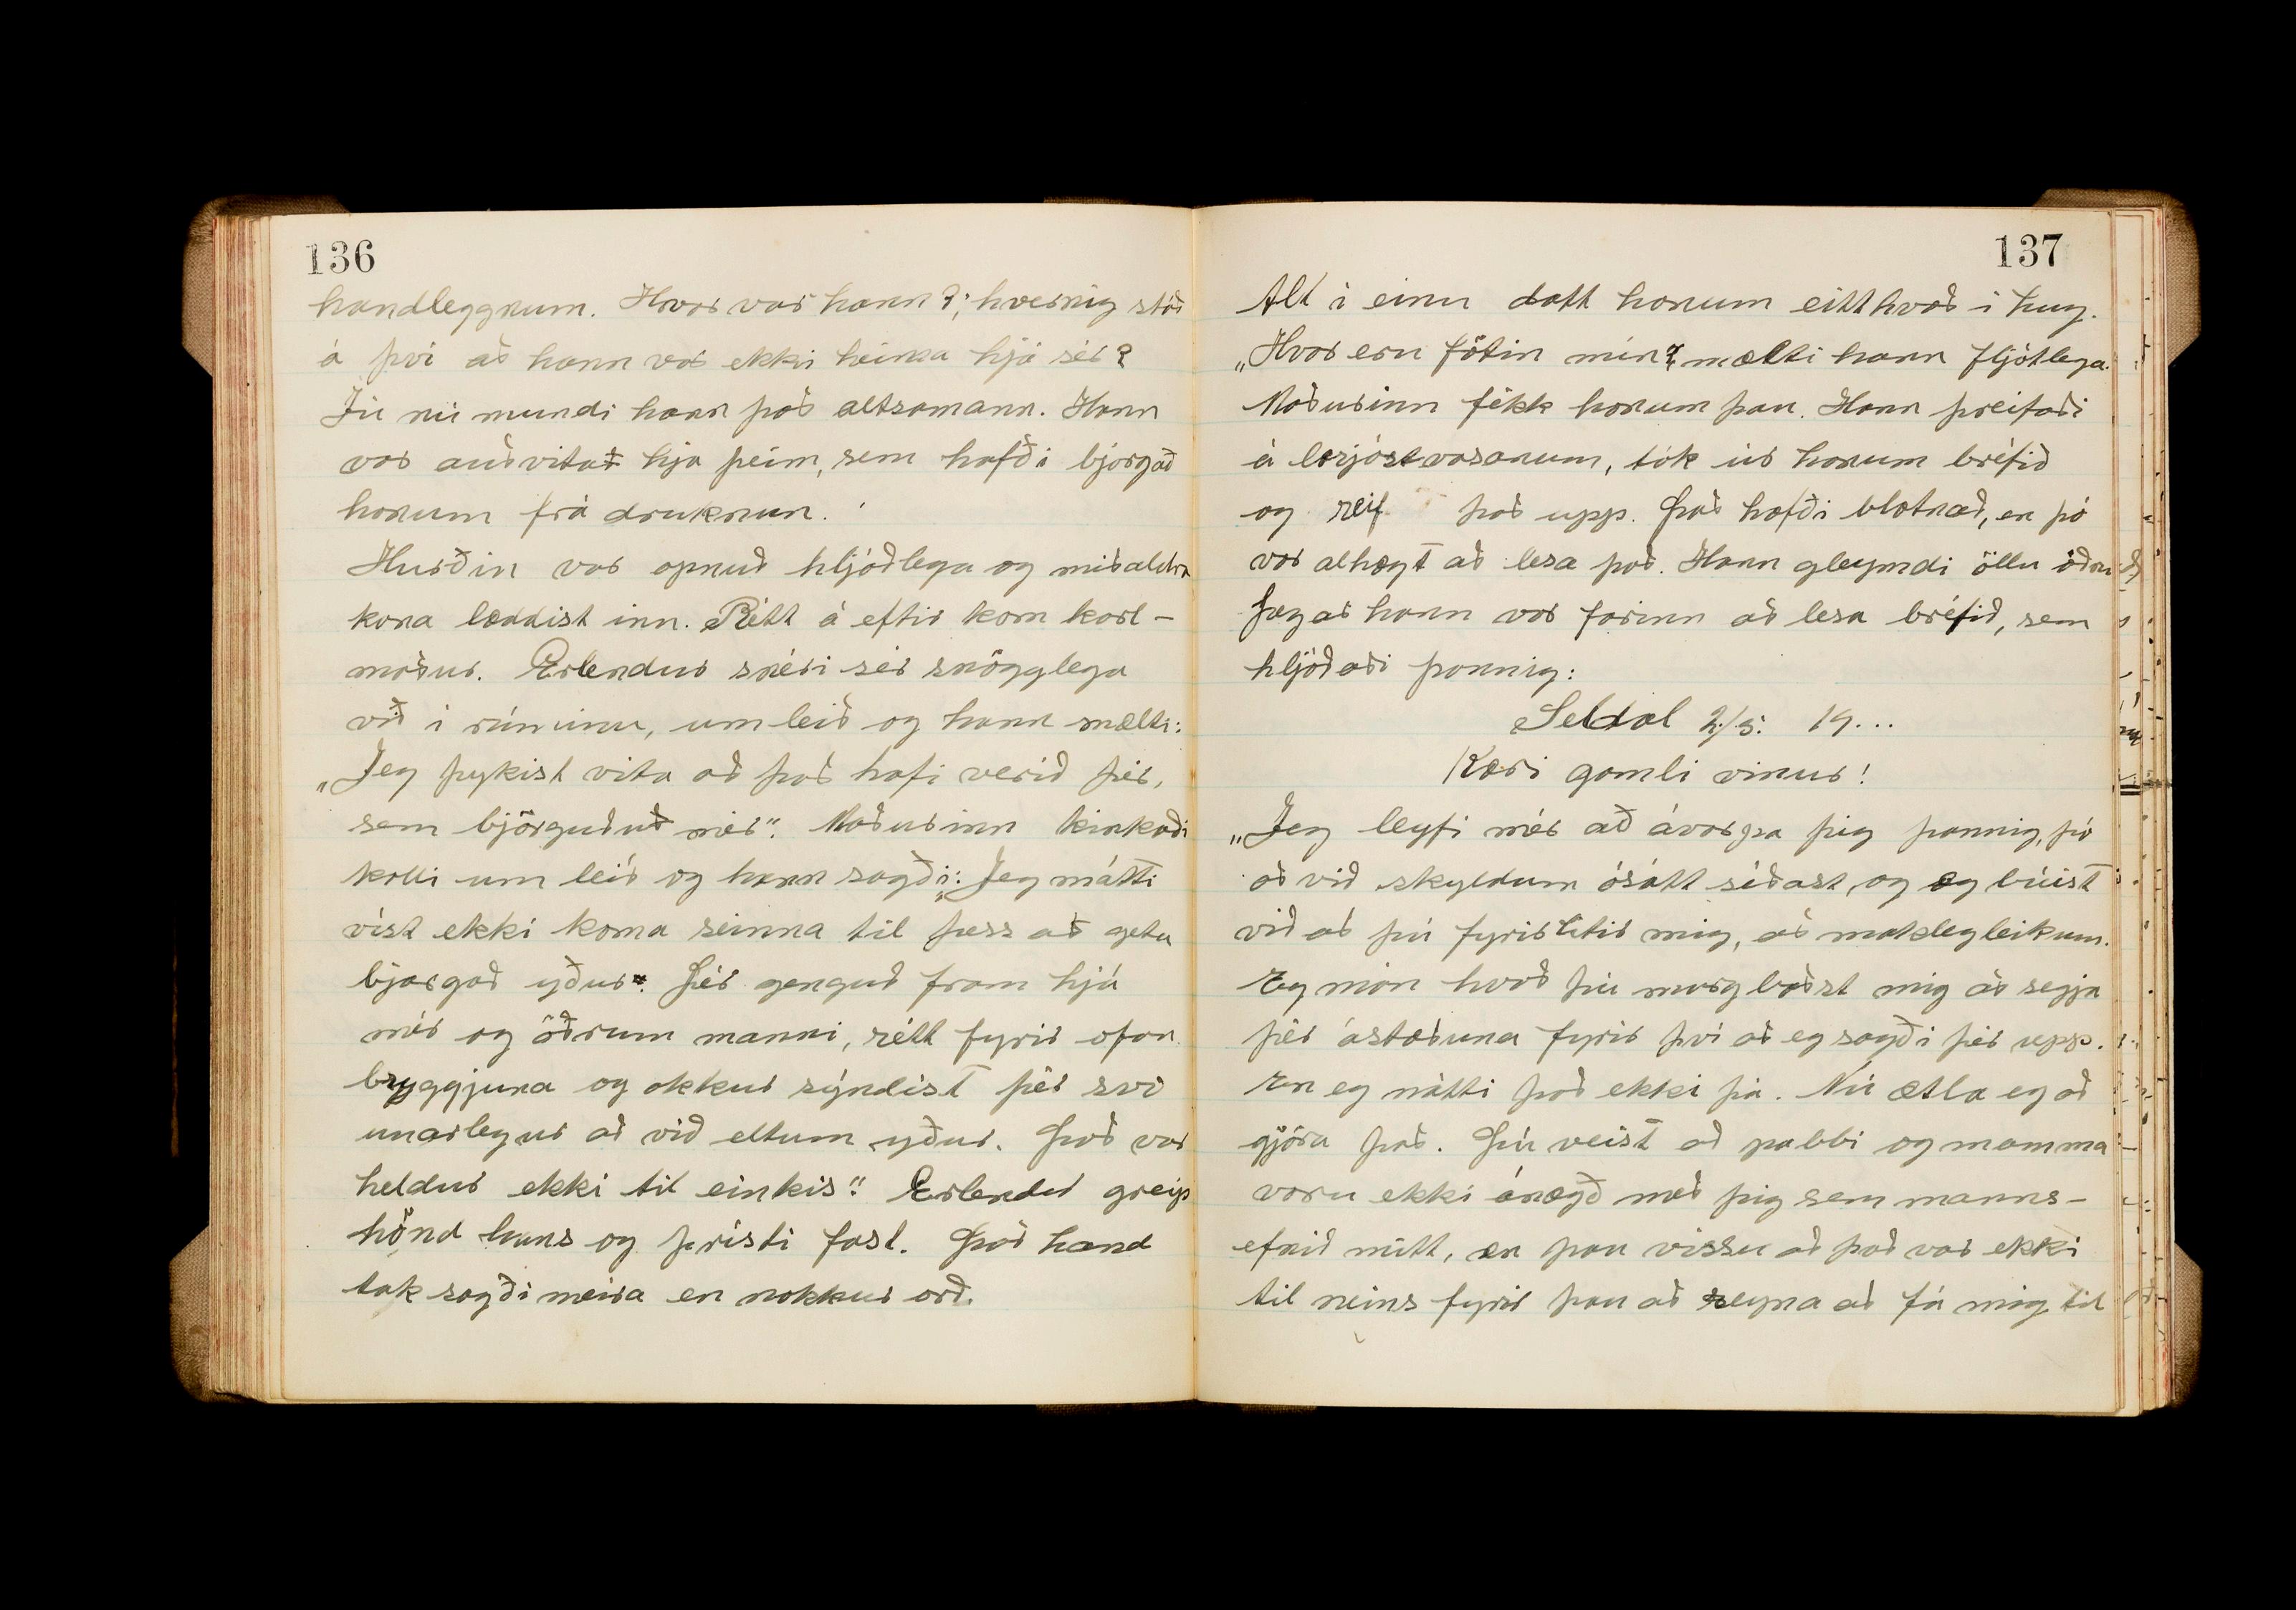 136
handleggnum. Hvar var hann?, hvernig stóð
á því að hann var ekki heima hjá sér?
Jú nú mundi hann það altsamann. Hann
var auðvitað hja þeim, sem hafði bjorgað
honum frá druknun.
Hurðin var opnuð hljóðlega og miðaldra
kona læddist inn. Rétt á eftir kom karl-
maður. Erlendur snéri sér snögglega
við i rúminu, um leið og hann mælti:
„Jeg þykist vita að það hafi verið þér,
sem björguðuð mér". Maðurinn kinkaði
kolli um leið og hann sagði: „Jeg mátti
víst ekki koma seinna til þess að geta
bjargað yður. Þér genguð fram hjá
mér og öðrum manni, rétt fyrir ofan
bryggjuna og okkur sýndist þér svo
unarlegur að við eltum yður. Það var
heldur ekki til einkis". Erlendur greip
hönd hans og þrísti fast. Það hand
tak sagði meira en nokkur orð.
137
Alt í einu datt honum eitthvað í hug.
„Hvar eru fötin mín? mælti hann fljótlega.
Maðurinn fékk honum þau. Hann þreifaði
á brjóstvasanum, tók úr honum bréfið
og reif það upp. Það hafði blotnað, en þó
var alhægt að lesa það. Hann gleymdi öllu öðru
þegar hann var farinn að lesa bréfið, sem
hljóðaði þannig:
Seldal 2/5. 19...
Kæri gamli vinur!
„Jeg leyfi mér að ávarpa þig þannig, þó
að við skyldum ósátt síðast, og eg búist
við að þú fyrirlítir mig, að maklegleikum.
Eg man hvað þú margbaðst mig að segja
þér ástæðuna fyrir því að eg sagði þér upp.
En eg mátti það ekki þá. Nú ætla eg að
gjöra það. Þú veist að pabbi og mamma
voru ekki ánægð með þig sem manns-
efnið mitt, en þau vissu að það var ekki
til neins fyrir þau að reyna að fá mig til